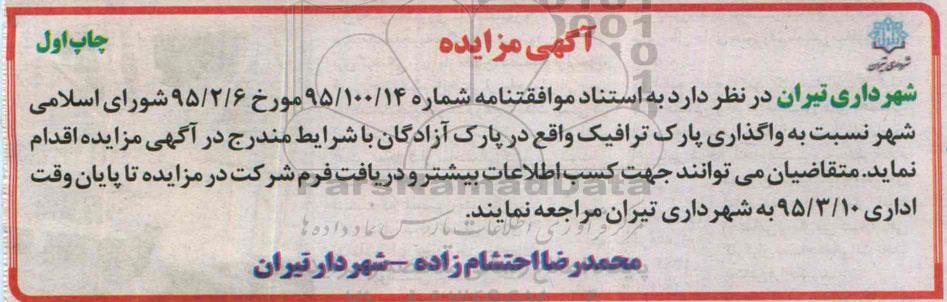 آگهی مزایده
چاپ اول
شهرداری تیران
شهرداری تیران در نظر دارد به استناد موافقتنامه شماره ۹۵/۱۰۰/۱۴ مورخ ۹۵/۲/۶ شورای اسلامی
شهر نسبت به واگذاری پارک ترافیک واقع در پارک آزادگان با شرایط مندرج در آگهی مزایده اقدام
نماید. متقاضیان می توانند جهت کسب اطلاعات بیشتر و دریافت فرم شرکت در مزایده تا پایان وقت
اداری ۹۵/۳/۱۰ به شهرداری تیران مراجعه نمایند.
ParsNamadData
محمدرضا احتشام زاده – شهردار تیران